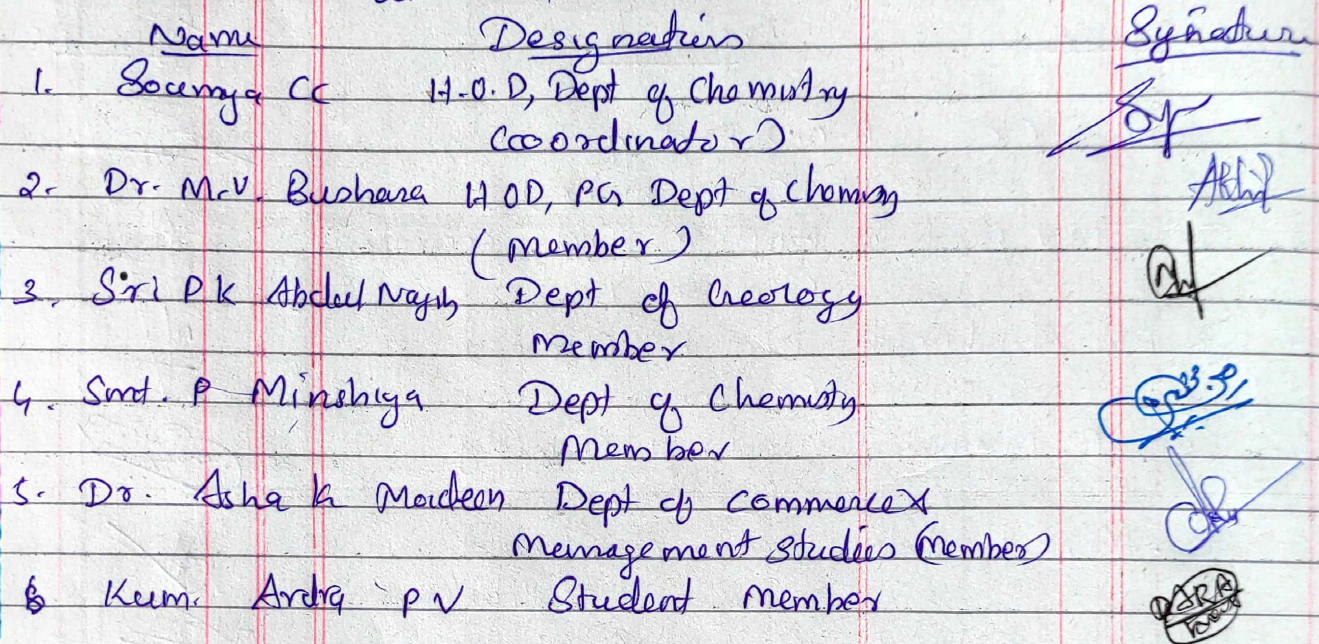 Name Designation Signature
1. Soumya CC H.O.D, Dept of Chemistry
(coordinator)
2. Dr. M.V. Bushara HOD, PG Dept of Chemistry
(member)
3. Sri P K Abdul Najib Dept of Geology
Member
4. Smt. P Minshiya Dept of Chemistry
Member
5. Dr. Asha K Moideen Dept of Commerce &
Management Studies (Member)
6 Kum. Ardra P V Student member